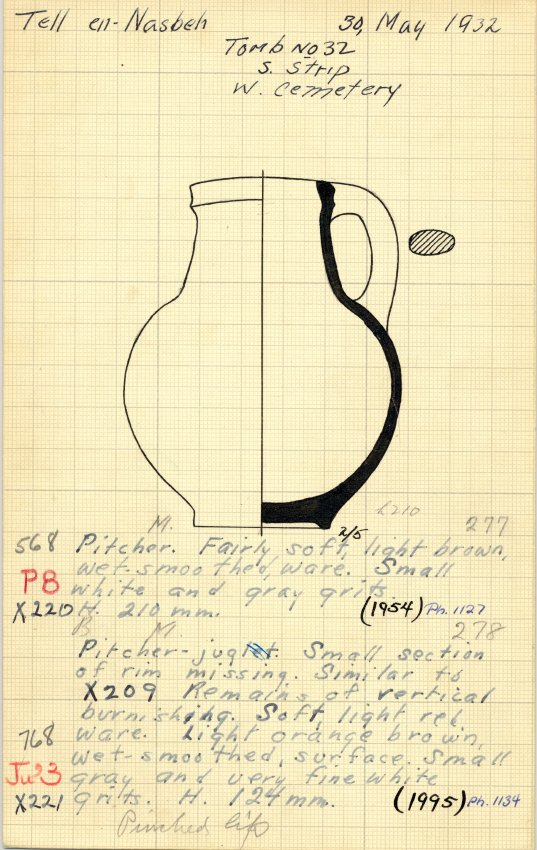 Tell en-Nasbeh 30, May 1932
Tomb No 32
S. Strip
W. Cemetery
h210
2/5
M. 277
568 Pitcher. Fairly soft, light brown,
wet-smoothed, ware. Small
P8 white and gray grits.
X220 H. 210 mm. (1954) Ph. 1127
B M. 278
Pitcher-juglet. Small section
of rim missing. Similar to
X209 Remains of vertical
burnishing. Soft, light red
768 ware. Light orange brown,
wet-smoothed, surface. Small
Ju23 gray and very fine white
X221 grits. H. 124 mm. (1995) Ph. 1134
Pinched lip